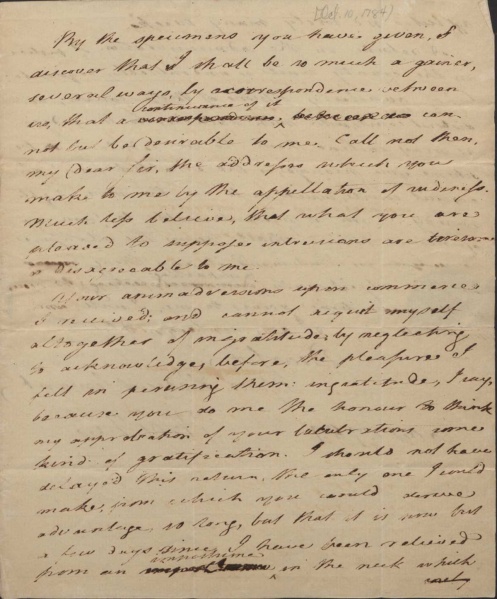 (Oct. 10, 1784)
By the specimens you have given, I
discover that I shall be so much a gainer,
several ways, by a correspondence between
us, that a continuance of it can-
not but be desirable to me. Call not then,
my dear sir, the addresses which you
make to me by the appellation of rudeness.
Much less believe, that what you are
pleased to suppose intrusions are tiresome
or disagreeable to me.
Your animadversions upon commerce
I received; and cannot acquit myself
altogether of ingratitude, by neglecting
to acknowledge, before, the pleasure I
felt in perusing them: ingratitude, I say,
because you do me the honour to think
my approbation of your lucubrations some
kind of gratification. I should not have
delayed this return, the only one I could
make, from which you could derive
advantage, so long, but that it is now but
a few days since I have been relieved
from an in the neck which
only